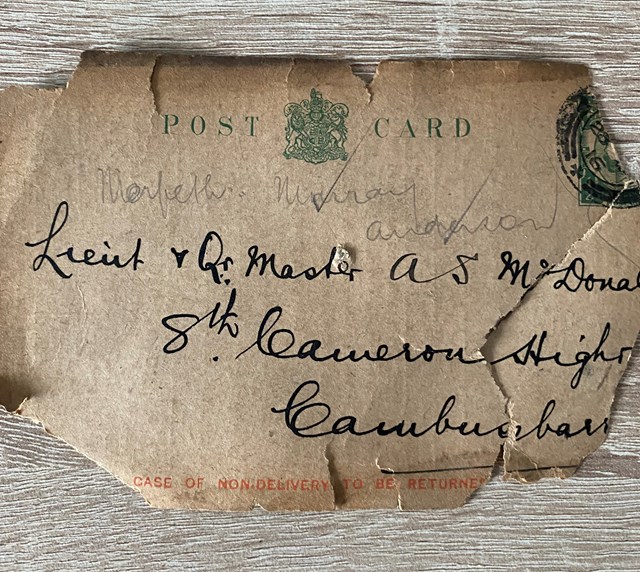 POST CARD
Morpeth. Murray.
anderson
Lieut & Qr. Master A S McDonal
8th. Cameron High
Cambusbarr
CASE OF NON-DELIVERY TO BE RETURNE